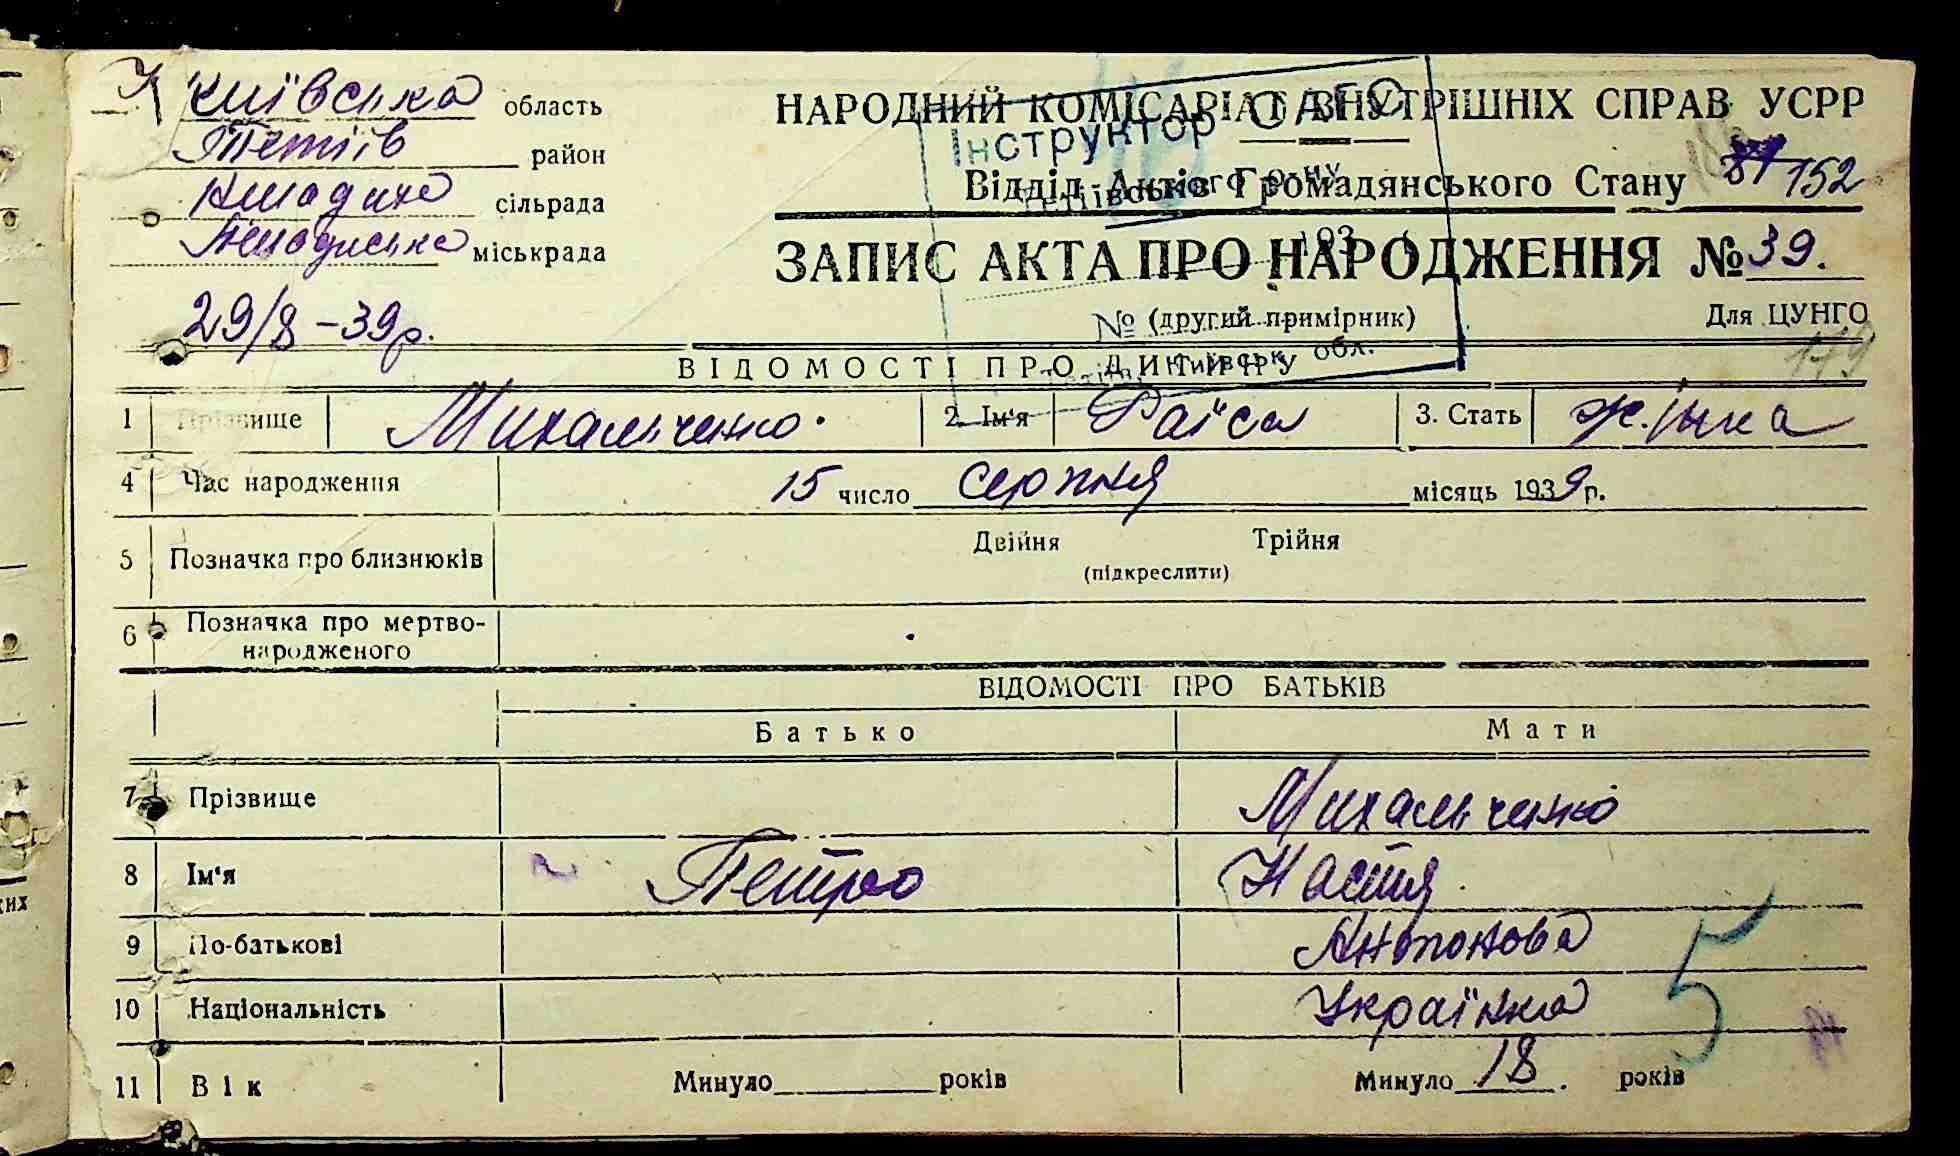 Київська область
Тетіїв район
сільрада
міськрада
29/8 - 39 р.
НАРОДНИЙ КОМІСАРІАТ ВНУТРІШНІХ СПРАВ УСРР
Відділ Актів Громадянського Стану 152
ЗАПИС АКТА ПРО НАРОДЖЕННЯ № 39.
(другий примірник) Для ЦУНГО
149
Інструктор ОАГС
193
№
обл.
ВІДОМОСТІ ПРО ДИТИНУ
1 Прізвище Михальченко. 2. Ім'я Раїса 3. Стать жінка
4 Час народження 15 число серпня місяць 1939 р.
5 Позначка про близнюків Двійня Трійня
(підкреслити)
6 Позначка про мертво-
народженого
ВІДОМОСТІ ПРО БАТЬКІВ
Батько Мати
7 Прізвище Михальченко
8 Ім'я Петро Настя
9 По-батькові Антонова
10 Національність Українка
5
11 Вік Минуло року років Минуло 18. років